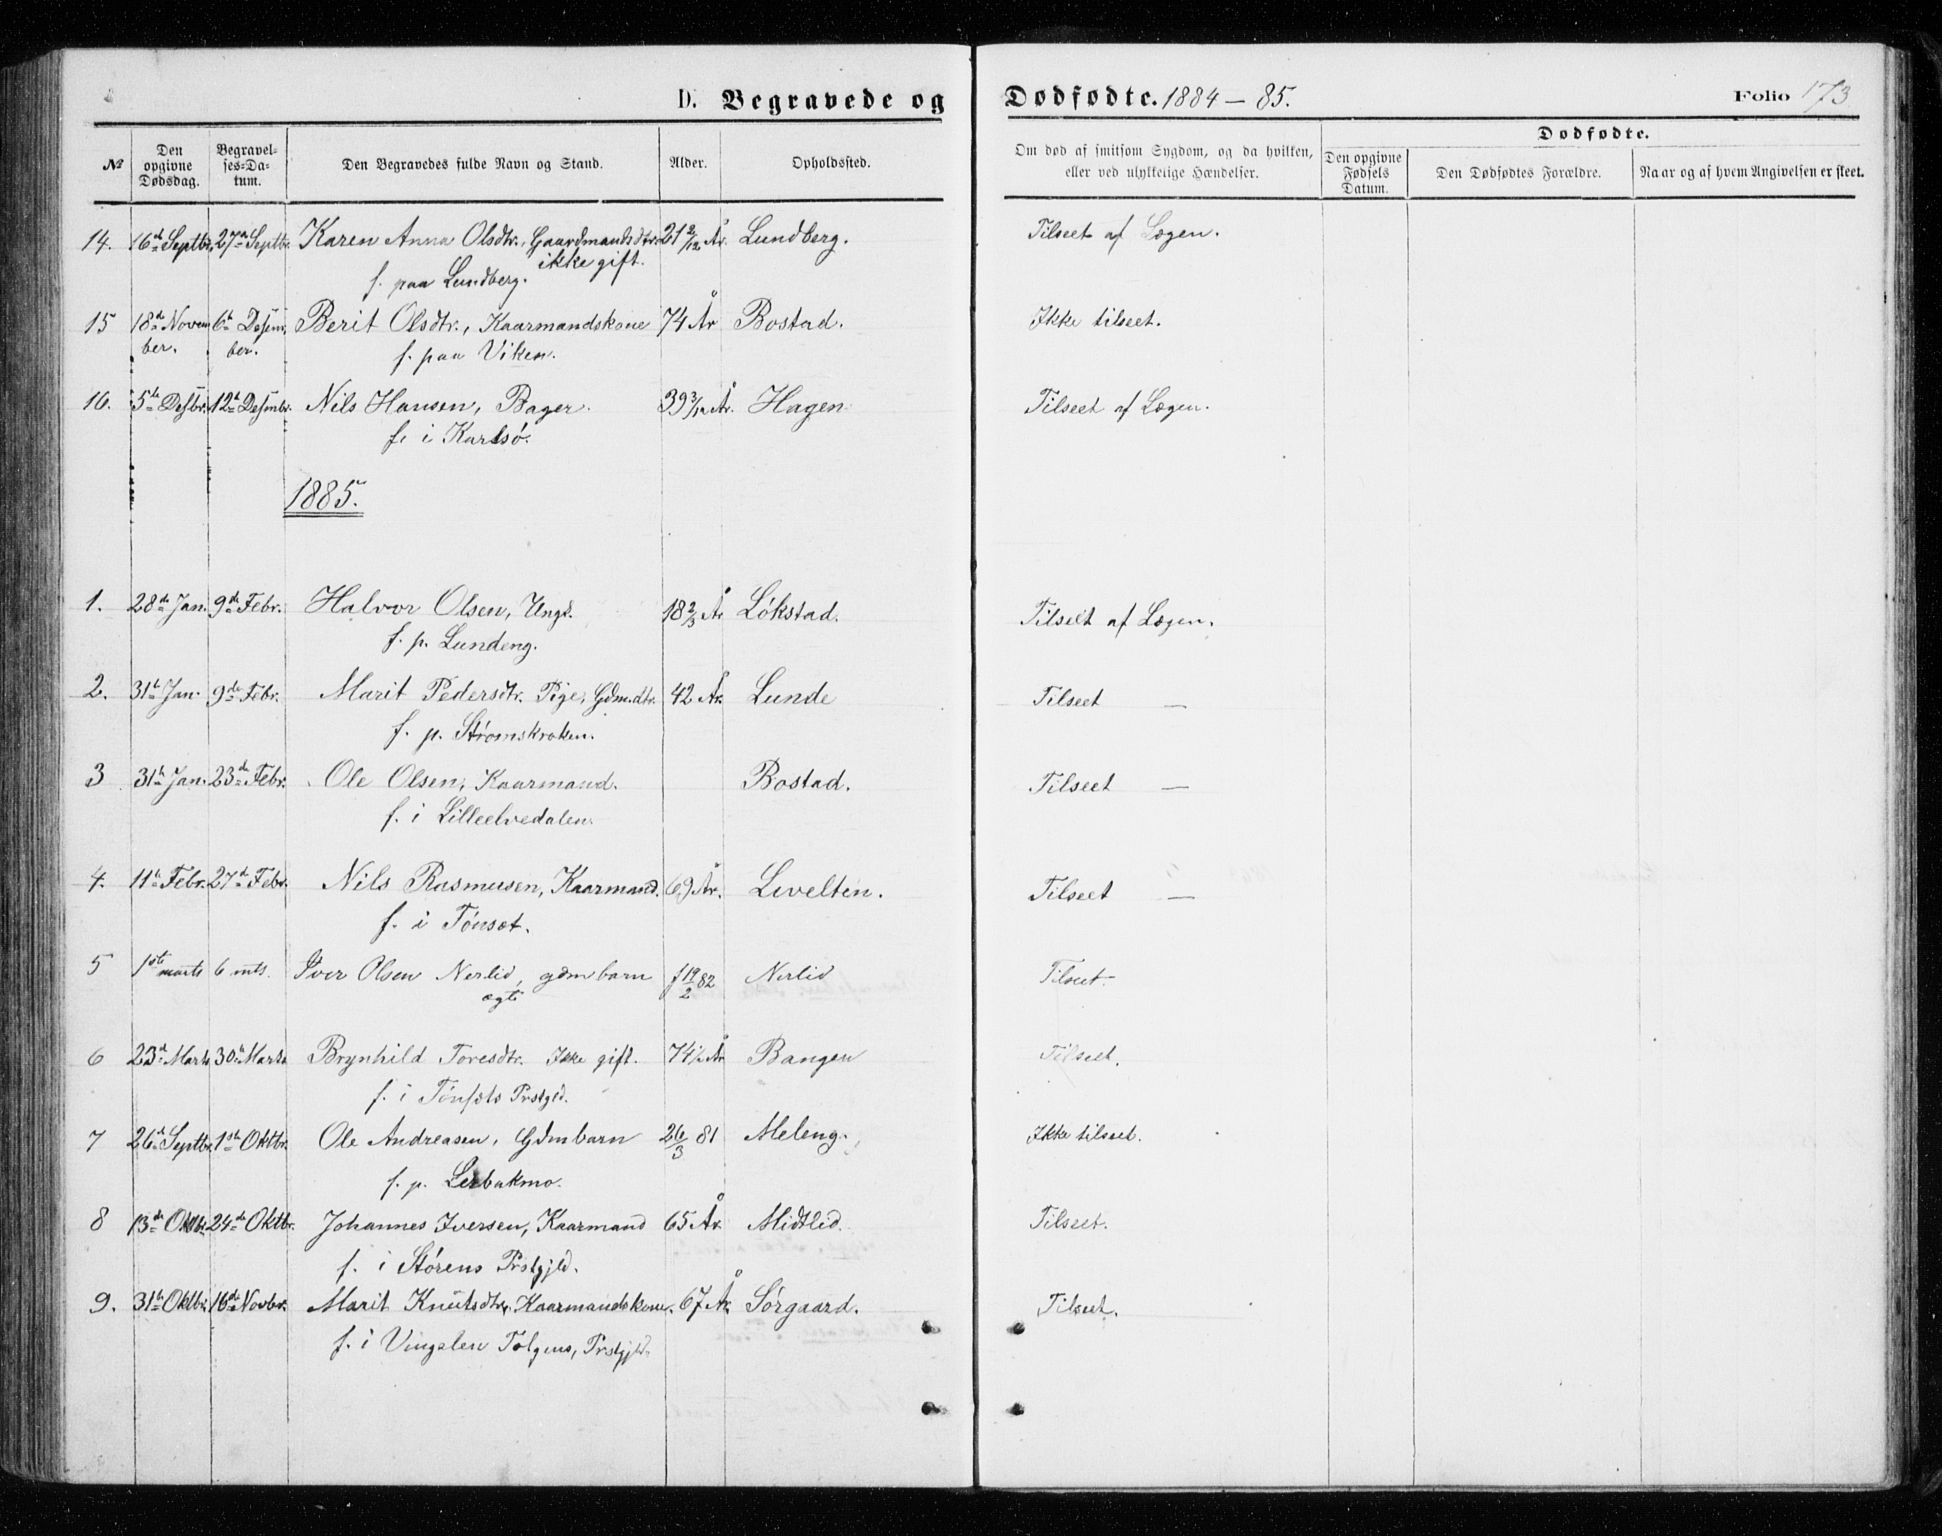 D. Begravede og Dødfødte. 1884 – 85. Folio 173
Dødfødte.
№ | Den opgivne Dødsdag. | Begravel-ses-Da-tum. | Den Begravedes fulde Navn og Stand. | Alder. | Opholdssted. | Om død af smitsom Sygdom, og da hvilken, eller ved ulykkelige Hændelser. | Den opgivne Fødsels Datum. | Den Dødfødtes Forældre. | Naar og af hvem Angivelsen er skeet.
14. 16de Septbr. 27de Septbr. Karen Anna Olsdtr., Gaardmandsdtr. 21 2/12 År. Lundberg. Tilseet af Lægen.
ikke gift.
f. paa Lundberg.
15 18de Novem 6te Desem Berit Olsdtr., Kaarmandskone 74 År Bostad. Ikke tilseet.
ber. ber. f. paa Viken.
16. 5te Desbr. 12te Desmbr. Nils Hansen, Bager. 39 3/12 År. Hagen Tilseet af Lægen.
f. i Karlsø.
1885.
1. 28de Jan. 9de Febr. Halvor Olsen, Ungk. 18 2/3 År Løkstad. Tilseet af Lægen.
f. p. Lundeng.
2. 31te Jan. 9de Febr. Marit Pedersdtr. Pige, Gdm.dtr. 42 År. Lunde Tilseet —
f. p. Strømskroken.
3 31te Jan. 23de Febr. Ole Olsen, Kaarmand. Bostad. Tilseet —
f. i Lilleelvedalen.
4. 11te Febr. 27de Febr. Nils Rasmusen, Kaarmand. 69 År. Livelten. Tilseet —
f. i Tønset.
5 1ste marts 6 mts. Iver Olsen Nerlid, gdm barn f 19/2 82 Nerlid Tilseet.
ægte
6 23de Marts 30te Marts Brynhild Toresdtr. Ikke gift. 74 1/2 År Bangen Tilseet.
f. i Tønsets Prstgld.
7 26de Septbr. 1ste Oktbr. Ole Andreasen, Gdmbarn 26/3 81 Meleng. Ikke tilseet.
f. p. Lerbakmo.
8 13de Oktbr. 24de Oktbr. Johannes Iversen, Kaarmand 65 År. Midtlid. Tilseet.
f. i Størens Prstgjld.
9. 31te Oktbr. 16de Novbr. Marit Knutsdtr. Kaarmandskone. 67 År Sørgaard. Tilseet.
f. i Vingelen Tolgens, Prstgjld.